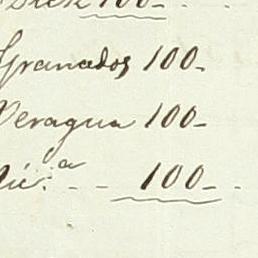 100-
Granados 100-
Veragua 100-
100-